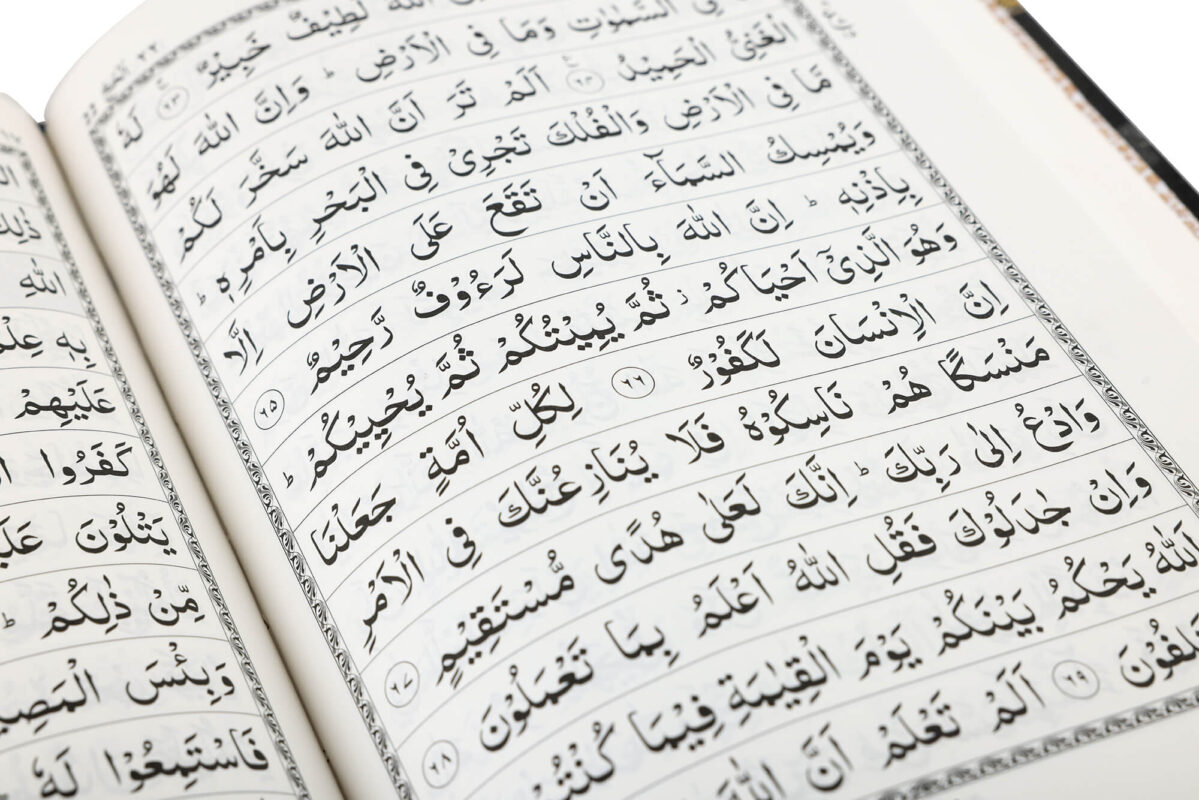 اللّٰهَ لَطِيْفٌ خَبِيْرٌ ﴿٦٣﴾ لَهٗ
فِى السَّمٰوٰتِ وَمَا فِى الْاَرْضِ ؕ وَاِنَّ اللّٰهَ لَهُوَ
الْغَنِىُّ الْحَمِيْدُ ﴿٦٤﴾ اَلَمْ تَرَ اَنَّ اللّٰهَ سَخَّرَ لَكُمْ
مَّا فِى الْاَرْضِ وَالْفُلْكَ تَجْرِىْ فِى الْبَحْرِ بِاَمْرِهٖ ؕ
وَيُمْسِكُ السَّمَآءَ اَنْ تَقَعَ عَلَى الْاَرْضِ اِلَّا
بِاِذْنِهٖ ؕ اِنَّ اللّٰهَ بِالنَّاسِ لَرَءُوْفٌ رَّحِيْمٌ ﴿٦٥﴾
وَهُوَ الَّذِىْۤ اَحْيَاكُمْ ز ثُمَّ يُمِيْتُكُمْ ثُمَّ يُحْيِيْكُمْ ؕ
اِنَّ الْاِنْسَانَ لَكَفُوْرٌ ﴿٦٦﴾ لِكُلِّ اُمَّةٍ جَعَلْنَا
مَنْسَكًا هُمْ نَاسِكُوْهُ فَلَا يُنَازِعُنَّكَ فِى الْاَمْرِ
وَادْعُ اِلٰى رَبِّكَ ؕ اِنَّكَ لَعَلٰى هُدًى مُّسْتَقِيْمٍ ﴿٦٧﴾
وَاِنْ جٰدَلُوْكَ فَقُلِ اللّٰهُ اَعْلَمُ بِمَا تَعْمَلُوْنَ ﴿٦٨﴾
اَللّٰهُ يَحْكُمُ بَيْنَكُمْ يَوْمَ الْقِيٰمَةِ فِيْمَا كُنْتُمْ
﴿٦٩﴾ اَلَمْ تَعْلَمْ اَنَّ اللّٰهَ
ذٰلِكَ
اللّٰهِ
بِهٖ
عَلَيْهِمْ
كَفَرُوا
يَتْلُوْنَ
مِّنْ ذٰلِكُمْ ؕ
وَبِئْسَ
فَاسْتَمِعُوْا لَهٗ